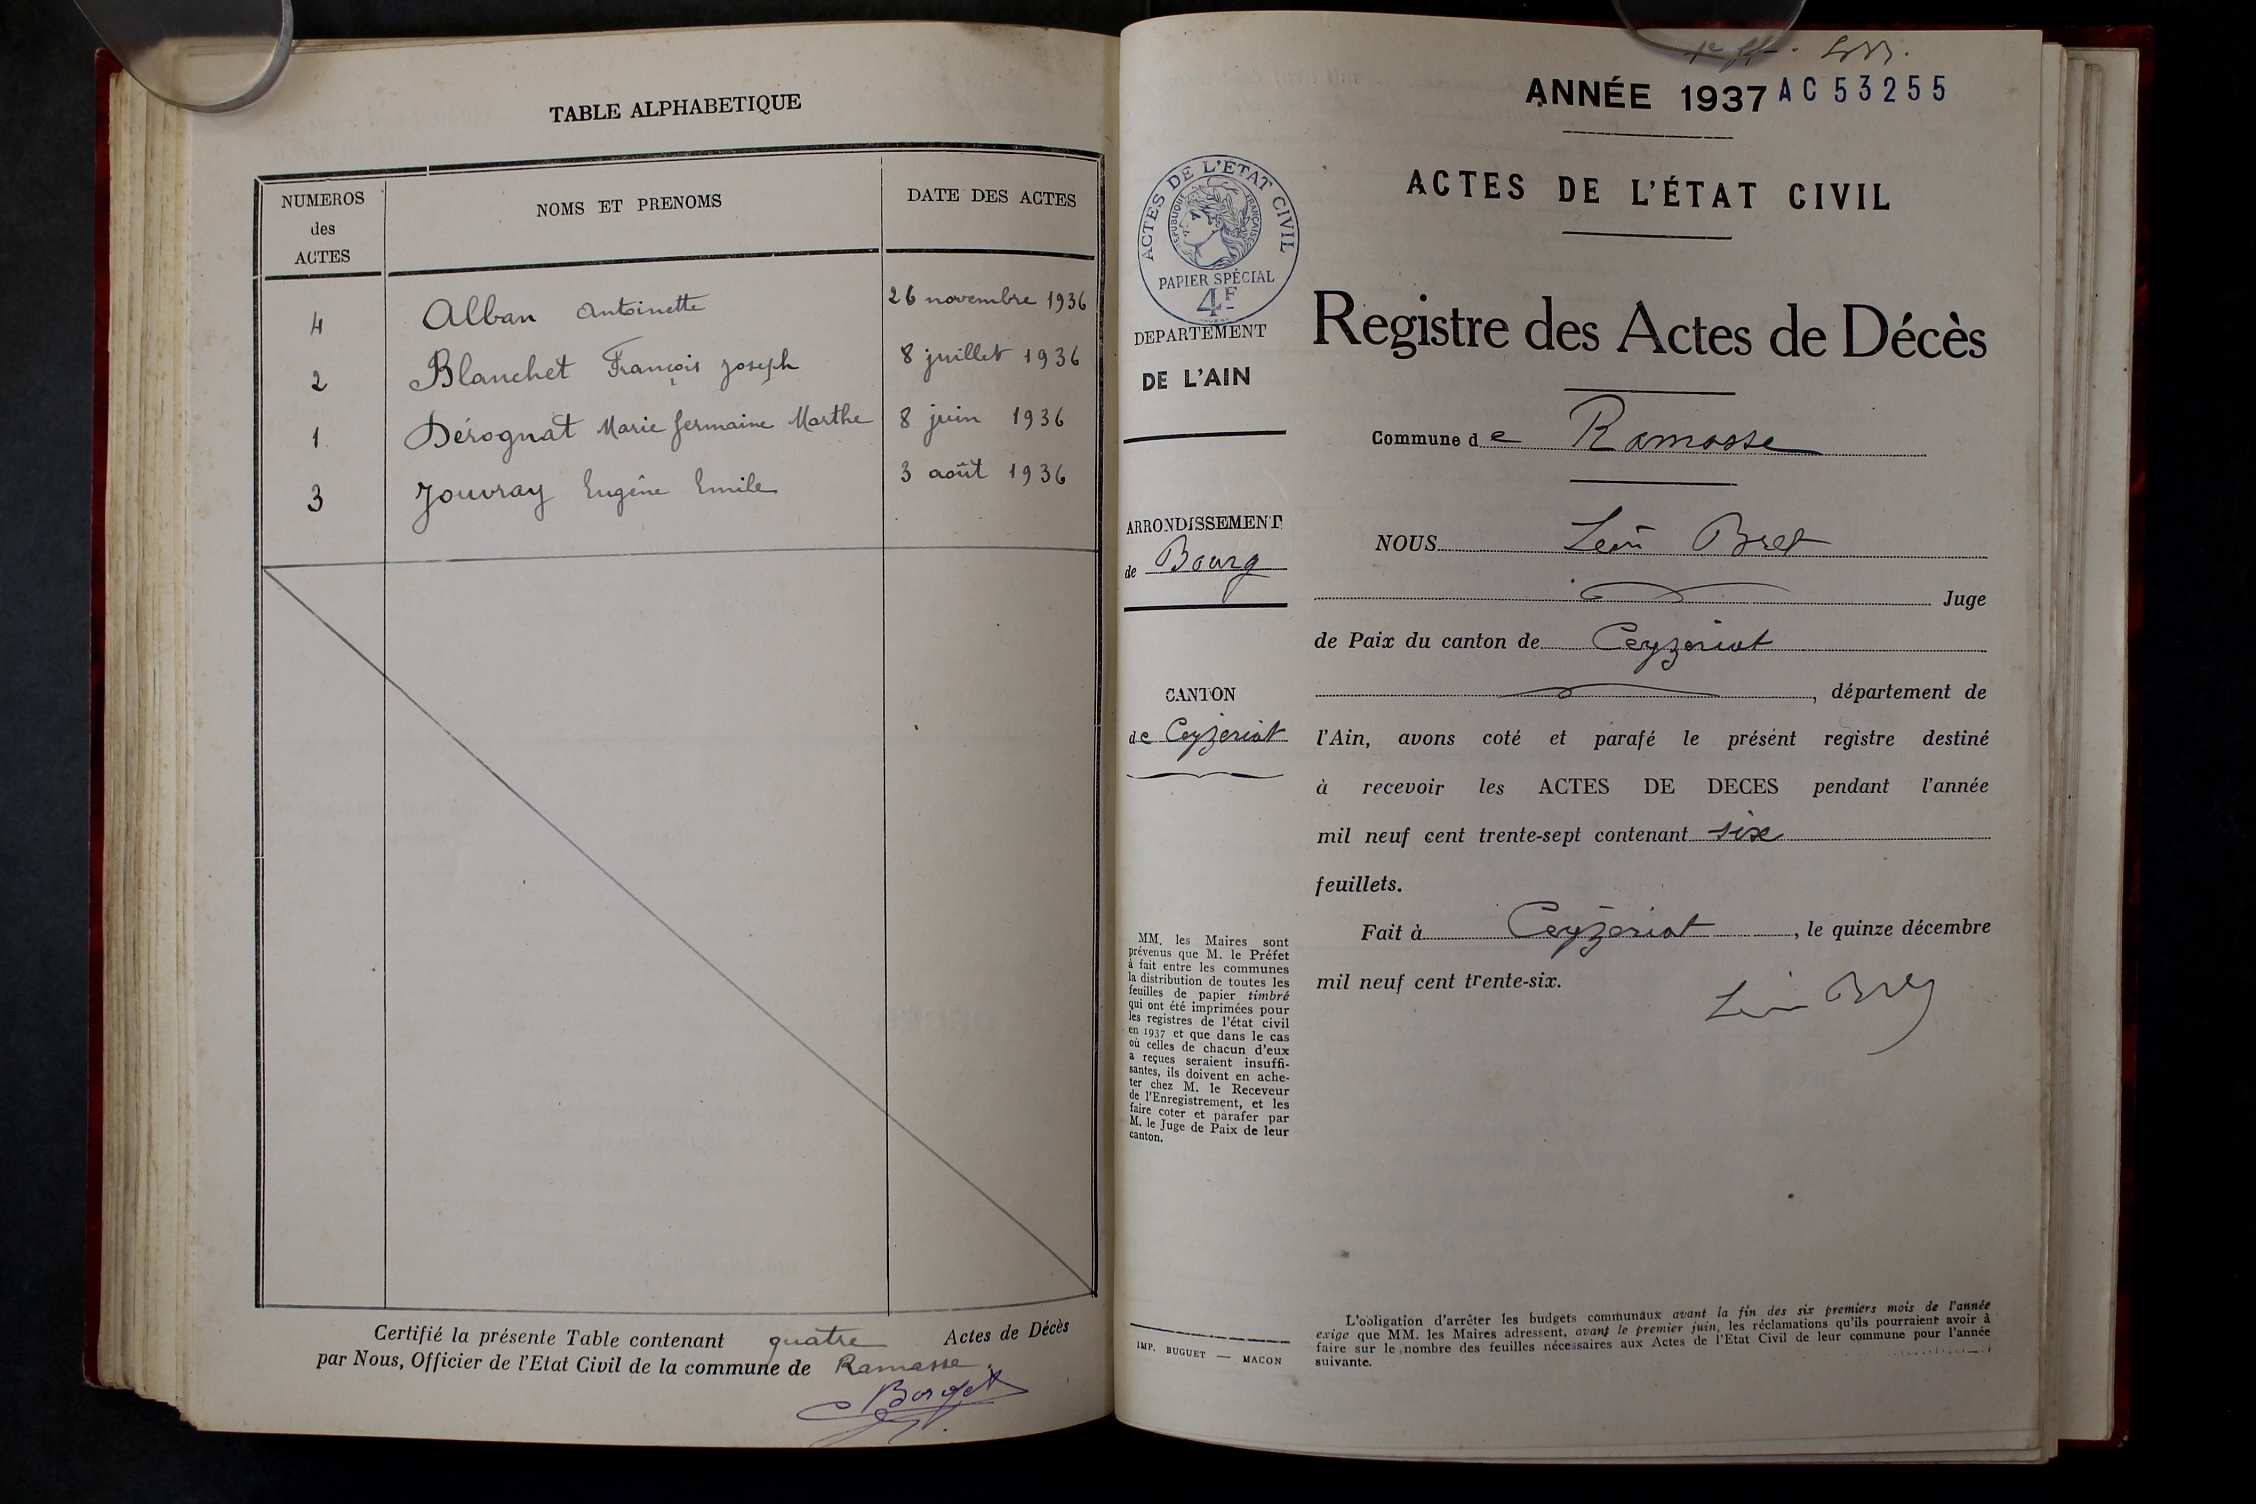 TABLE ALPHABETIQUE
NUMEROS
des
ACTES
NOMS ET PRENOMS
DATE DES ACTES
4 Alban Antoinette 26 novembre 1936
2 Blanchet François Joseph 8 juillet 1936
1 Dérognat Marie Germaine Marthe 8 juin 1936
3 Jouvray Eugène Emile 3 août 1936
Certifié la présente Table contenant quatre Actes de Décès
par Nous, Officier de l'Etat Civil de la commune de Ramasse.
ANNÉE 1937 AC 53255
ACTES DE L'ÉTAT CIVIL
ACTES DE L'ETAT CIVIL
REPUBLIQUE FRANÇAISE
PAPIER SPÉCIAL
4F
DEPARTEMENT
DE L'AIN
ARRONDISSEMENT
de Bourg
CANTON
de Ceyzériat
MM. les Maires sont
prévenus que M. le Préfet
à fait entre les communes
la distribution de toutes les
feuilles de papier timbré
qui ont été imprimées pour
les registres de l'état civil
en 1937 et que dans le cas
où celles de chacun d'eux
a reçues seraient insuffi-
santes, ils doivent en ache-
ter chez M. le Receveur
de l'Enregistrement, et les
faire coter et parafer par
M. le Juge de Paix de leur
canton.
IMP. BUGUET — MACON
Registre des Actes de Décès
Commune de Ramasse
NOUS Léon Bret
Juge
de Paix du canton de Ceyzériat
, département de
l'Ain, avons coté et parafé le présent registre destiné
à recevoir les ACTES DE DECES pendant l'année
mil neuf cent trente-sept contenant six
feuillets.
Fait à Ceyzériat, le quinze décembre
mil neuf cent trente-six.
Léon Bret
L'obligation d'arrêter les budgets communaux avant la fin des six premiers mois de l'année
exige que MM. les Maires adressent, avant le premier juin, les réclamations qu'ils pourraient avoir à
faire sur le nombre des feuilles nécessaires aux Actes de l'Etat Civil de leur commune pour l'année
suivante.